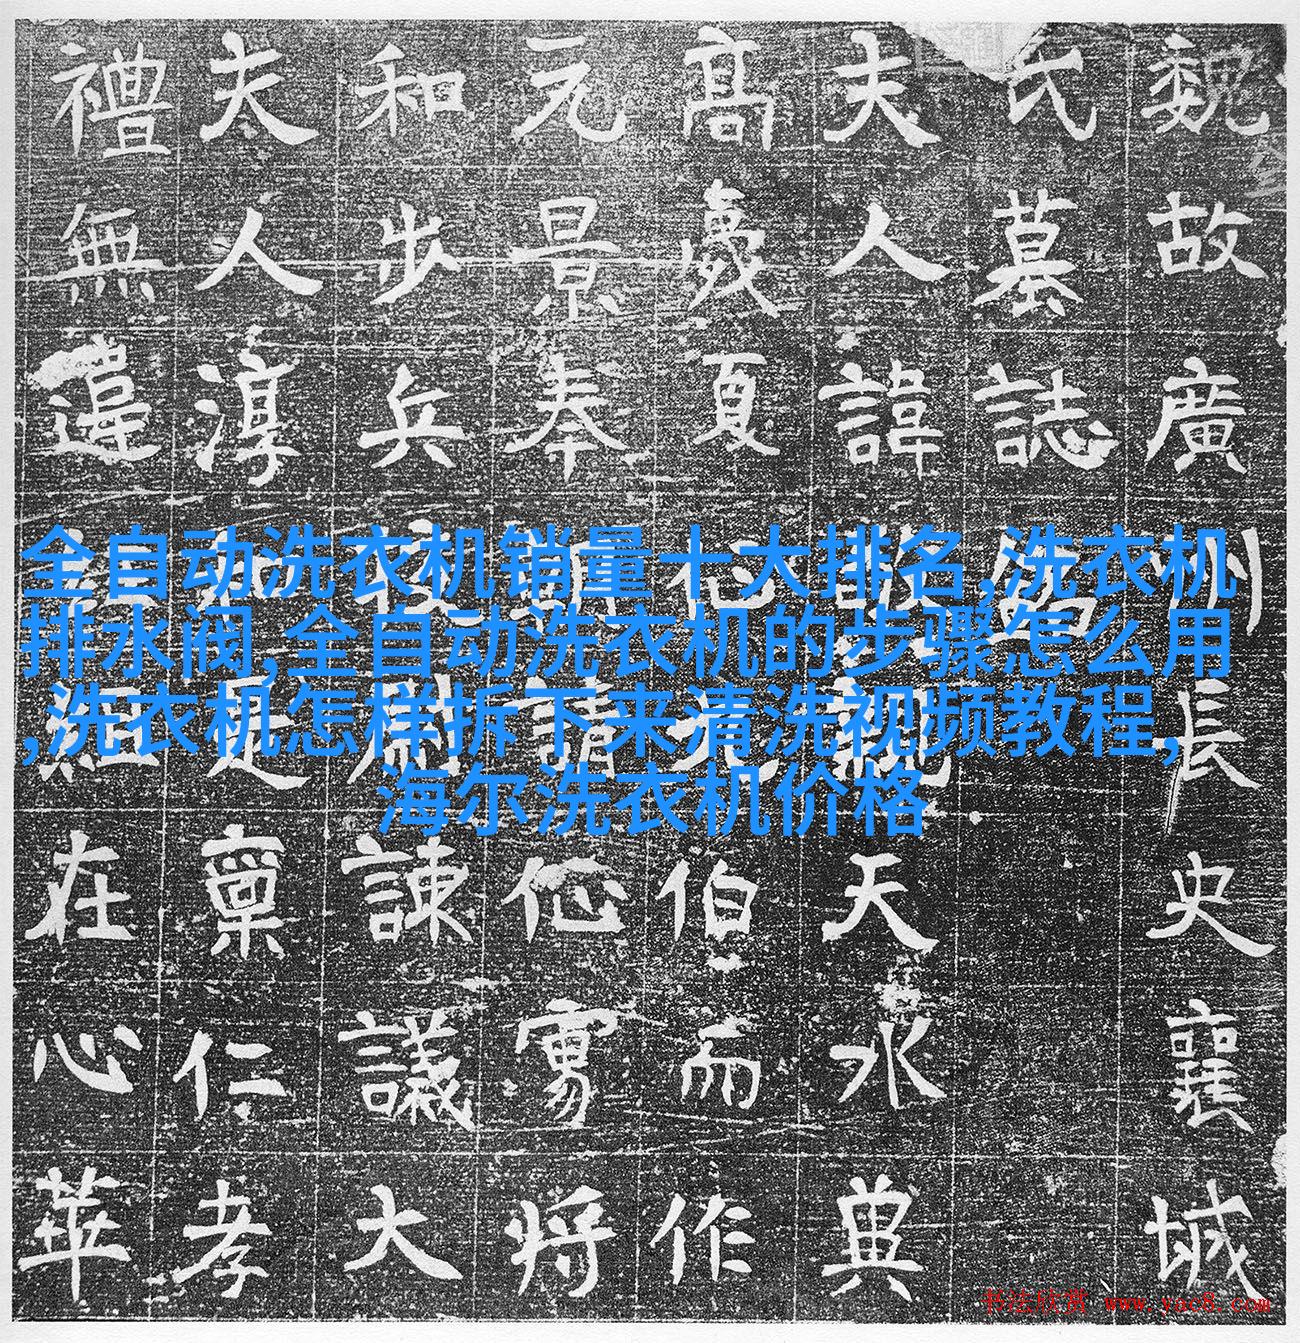 魏故廣州長史襄城
氏墓誌銘
夫人諱親天水典
高歲夏心光伯而作
元景奉朝請將
和步兵校諫議大
夫人淳禀仁孝
禮無違在心華
全自动洗衣机销量十大排名,洗衣机
排水阀,全自动洗衣机的步骤怎么用
,洗衣机怎样拆下来清洗视频教程,
海尔洗衣机价格
书法欣赏 www.yac8.com